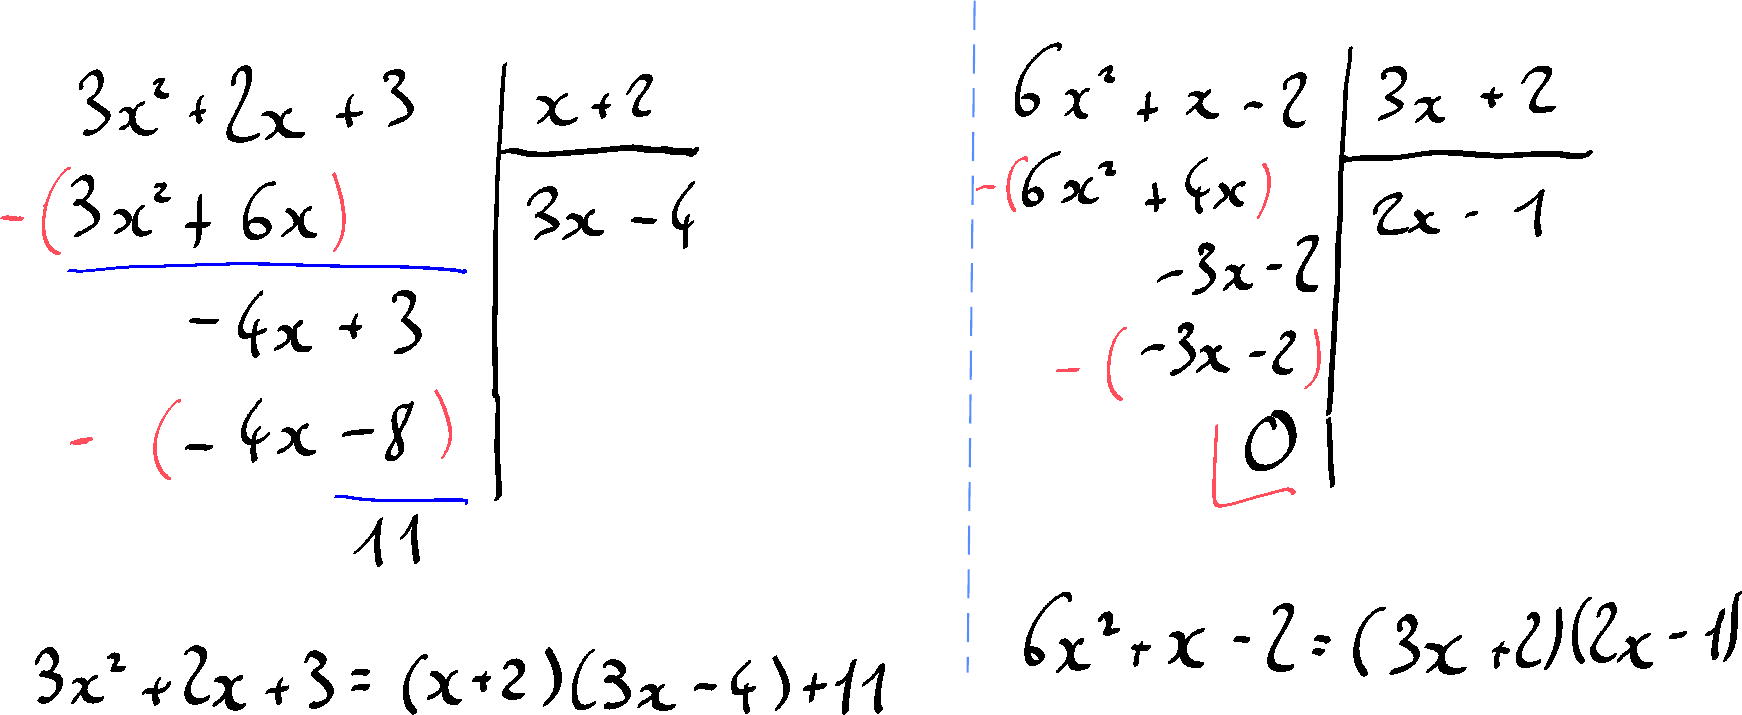 3x² + 2x + 3 x + 2
-(3x² + 6x) 3x - 4
-4x + 3
-(-4x - 8)
11
3x² + 2x + 3 = (x+2)(3x - 4) + 11
6x² + x - 2 3x + 2
-(6x² + 4x) 2x - 1
-3x - 2
-(-3x - 2)
0
6x² + x - 2 = (3x + 2)(2x - 1)